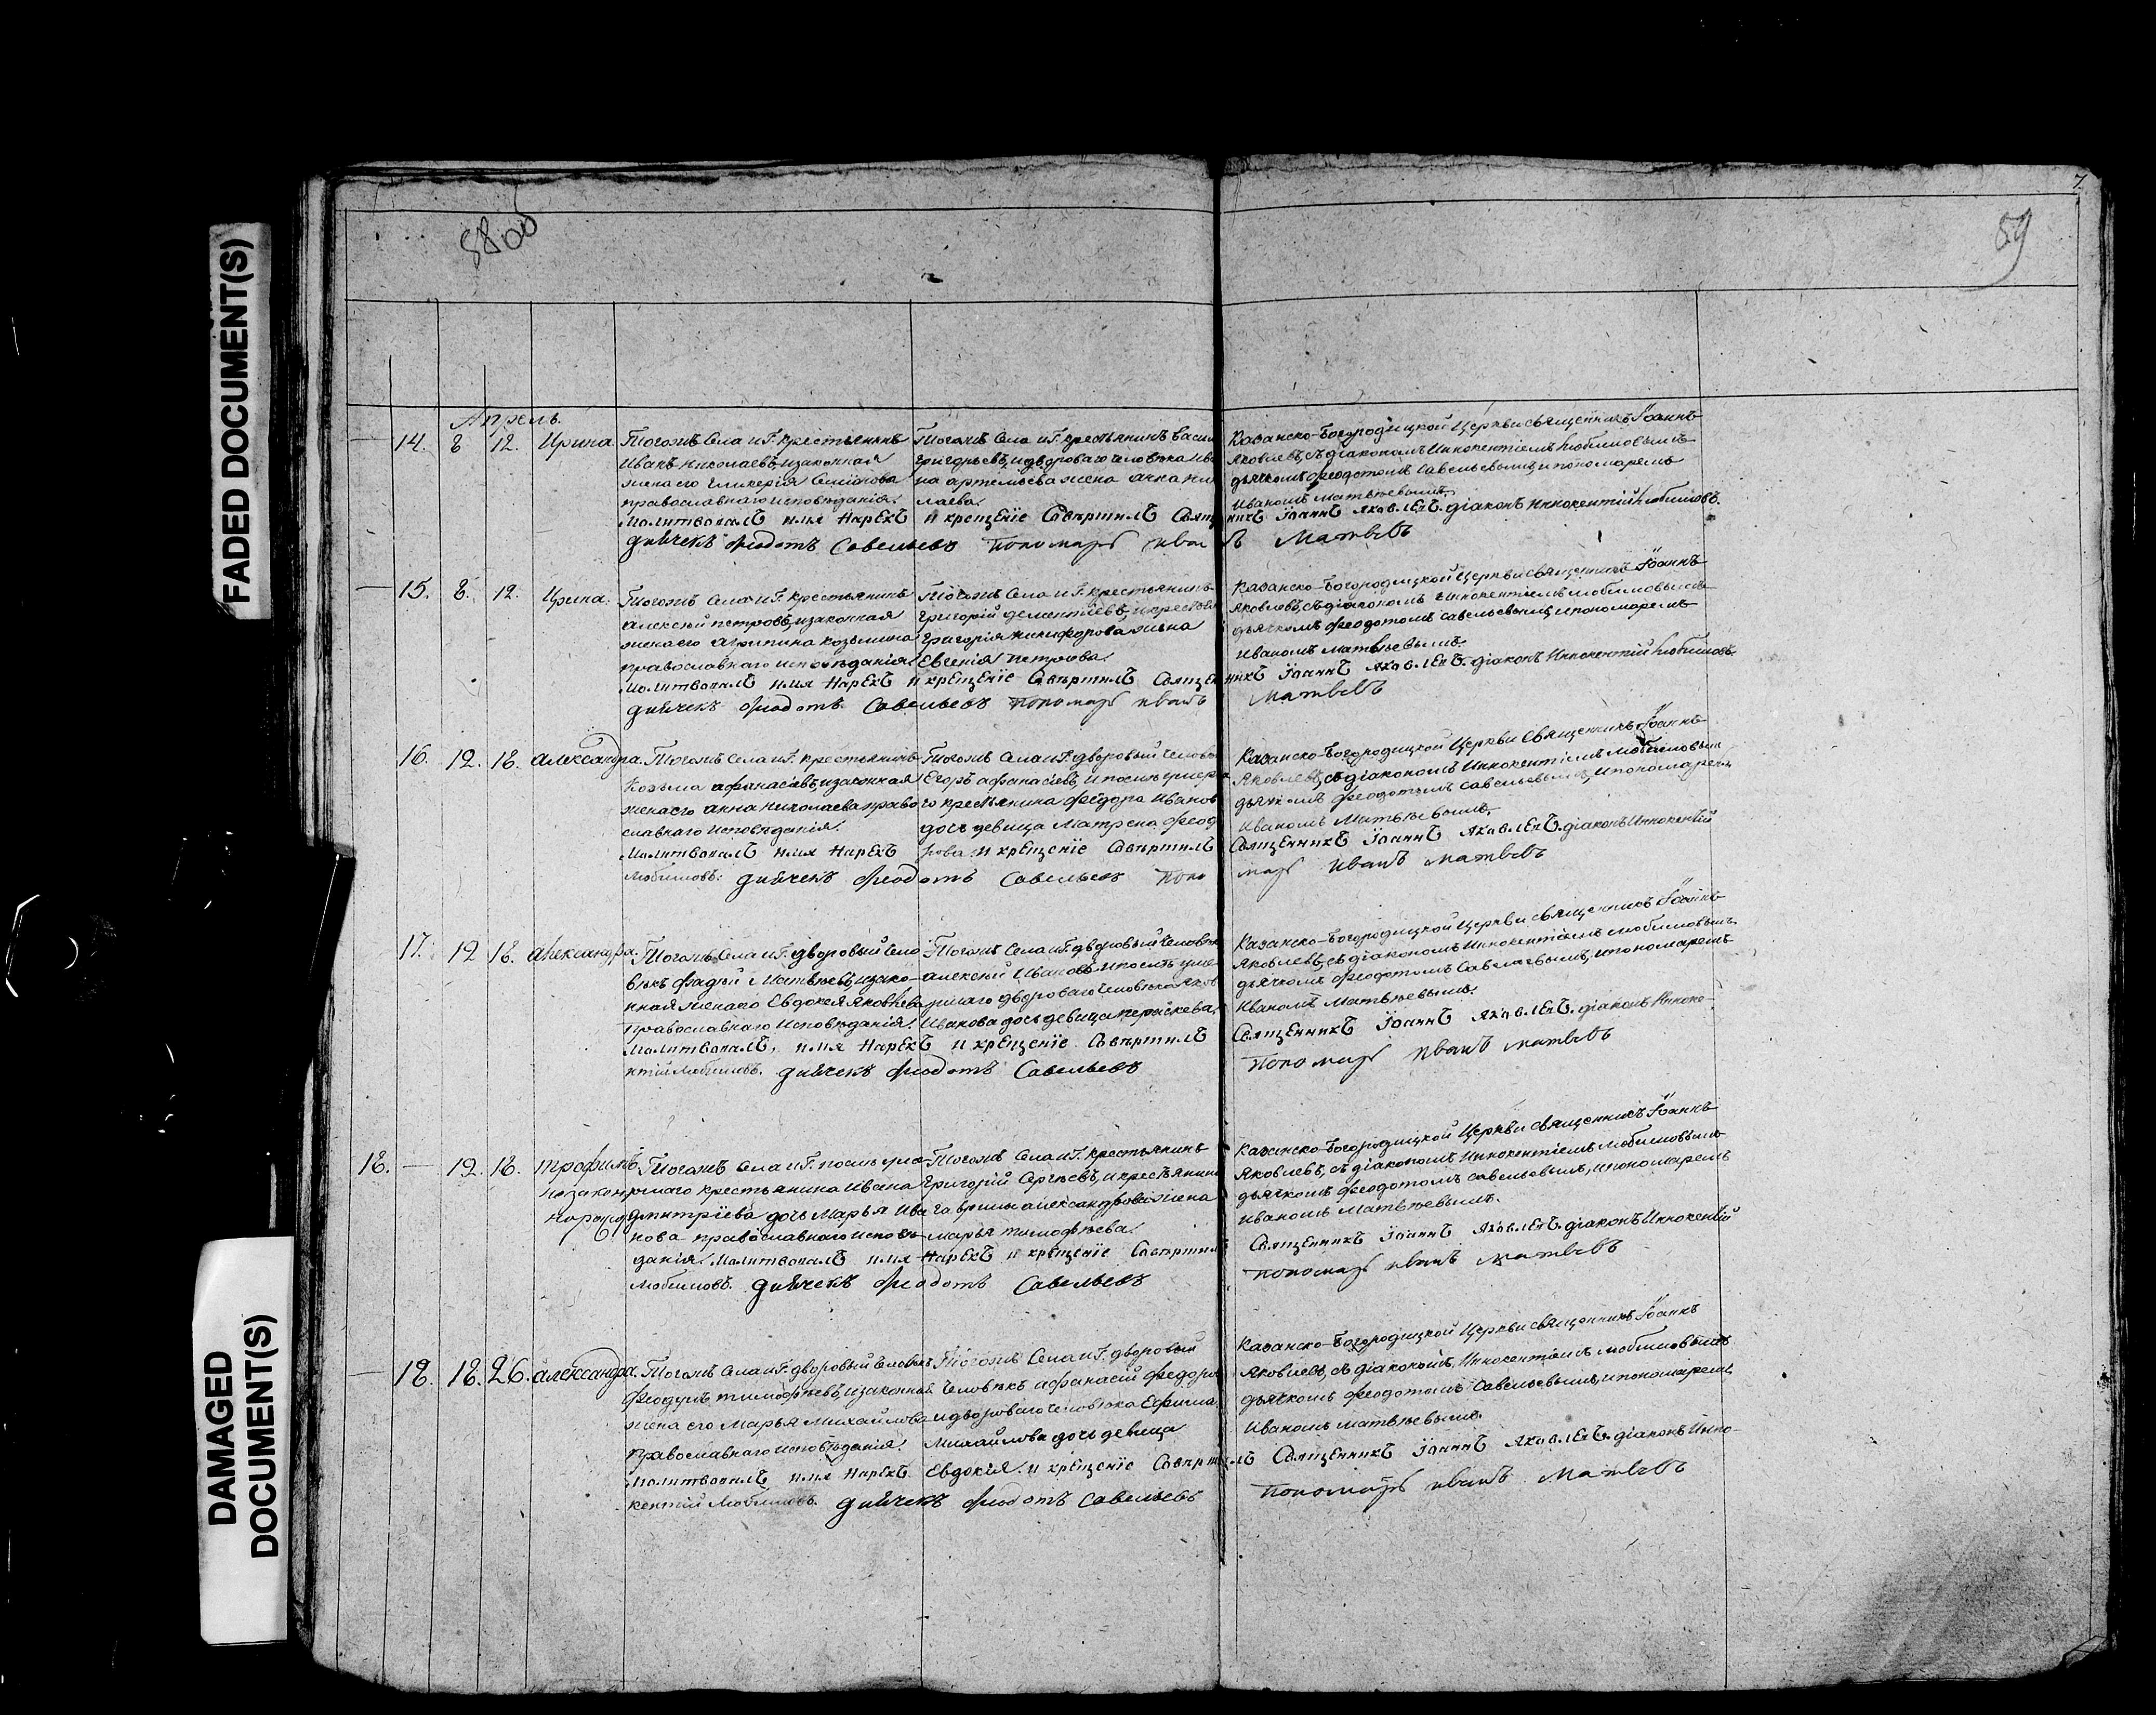 FADED DOCUMENT(S)
DAMAGED
DOCUMENT(S)
58об
7.
59
Апрель.
14. 8 12. Ирина. Тогожъ Села и Г. крестьянинъ
Иванъ Николаевъ, и законная
жена его Гликерія Семіонова
православнаго исповѣданія.
Тогожъ Села и Г. крестьянинъ Васил
Григорьевъ, и двороваго человѣка Ива
на артемьева жена анна ни
лаева.
Казанско-Богородицкой Церкви священникъ Іоаннъ
Яковлевъ, съ діакономъ Иннокентіемъ Любимовымъ
дьячкомъ Феодотомъ Савельевымъ, и пономаремъ
Иваномъ Матвѣевымъ.
Молитвовалъ имя нарекъ и крещеніе Совершилъ Священникъ Іоаннъ Яковлевъ. діаконъ Иннокентій Любимовъ.
дьячекъ Феодотъ Савельевъ Пономарь иванъ Матвевъ
15. 8. 12. Ирина. Тогожъ Села и Г. крестьянинъ
алексѣй петровъ, и законная
жена его агрипина козьмина
православнаго исповѣданія.
Тогожъ Села и Г. крестьянинъ
Григорій дементіевъ, и крестьян
Григорія никифорова жена
Евгенія петрова.
Казанско-Богородицкой Церкви священникъ Іоаннъ
Яковлевъ, съ діакономъ Иннокентіемъ Любимовымъ
дьячкомъ Феодотомъ Савельевымъ, и пономаремъ
Иваномъ Матвѣевымъ.
Молитвовалъ имя нарекъ и крещеніе Совершилъ Священникъ Іоаннъ Яковлевъ. діаконъ Иннокентій Любимовъ.
дьячекъ Феодотъ Савельевъ Пономарь иванъ Матвевъ
16. 12. 18. александра. Тогожъ Села и Г. крестьянинъ
Козьма афанасіевъ, и законная
жена его анна николаева право
славнаго исповѣданія.
Тогожъ Села и Г. дворовый человѣ
Егоръ афанасіевъ, и послѣ умерша
го крестьянина Фёдора Иванов
дочь девица Матрена Феод
рова.
Казанско-Богородицкой Церкви Священникъ Іоаннъ
Яковлевъ, съ діакономъ Иннокентіемъ Любимовым
дьячкомъ Феодотомъ Савельевымъ, и пономаремъ
Иваномъ Матвѣевымъ.
Молитвовалъ имя нарекъ и крещеніе Совершилъ Священникъ Іоаннъ Яковлевъ. діаконъ Иннокентій
Любимовъ. дьячекъ Феодотъ Савельевъ Пономарь Иванъ Матвевъ
17. 12 18. александра. Тогожъ Села и Г. дворовый чело
вѣкъ Фадѣй Матвѣевъ, и зако-
нная жена его Евдокея Яковлева
православнаго исповѣданія.
Тогожъ Села и Г. дворовый человѣкъ
алексѣй Ивановъ и послѣ уме-
ршаго двороваго человѣка Яков
Иванова дочь девица параскева.
Казанско-Богородицкой Церкви священникъ Іоаннъ
Яковлевъ, съ діакономъ Иннокентіемъ Любимовымъ
дьячкомъ Феодотомъ Савельевымъ, и пономаремъ
Иваномъ Матвѣевымъ.
Молитвовалъ, имя нарекъ и крещеніе Совершилъ Священникъ Іоаннъ Яковлевъ. діаконъ Инноке-
нтій Любимовъ. дьячекъ Феодотъ Савельевъ Пономарь иванъ матвевъ
18. — 12. 18. Трофимъ незакон норож Тогожъ Села и Г. послѣ уме-
ршаго крестьянина Ивана
дмитріева дочь Марья Ива
нова православнаго исповѣ-
данія.
Тогожъ Села и Г. крестьянинъ
Григорій Сергѣевъ, и крестьянин
Гаврилы александрова жена
марья тимофѣева.
Казанско-Богородицкой Церкви священникъ Іоаннъ
Яковлевъ, съ діакономъ Иннокентіемъ Любимовымъ
дьячкомъ Феодотомъ Савельевымъ, и пономаремъ
Иваномъ Матвѣевымъ.
Молитвовалъ имя нарекъ и крещеніе Совершилъ Священникъ Іоаннъ Яковлевъ. діаконъ Иннокентій
Любимовъ. дьячекъ Феодотъ Савельевъ пономарь иванъ матвевъ
— 18. 18. 26. александра. Тогожъ Села и Г. дворовый человѣкъ
Феодулъ тимофѣевъ, и законная
жена его Марья Михайлова
православнаго исповѣданія.
Тогожъ Села и Г. дворовый
человѣкъ афанасій Федоро
и двороваго человѣка Ефима
Михайлова дочь девица
Евдокія.
Казанско-Богородицкой Церкви священникъ Іоаннъ
Яковлевъ, съ діакономъ, Иннокентіемъ Любимовымъ
дьячкомъ Феодотомъ Савельевымъ, и пономаремъ
Иваномъ матвѣевымъ.
Молитвовалъ имя нарекъ и крещеніе Совершилъ Священникъ Іоаннъ Яковлевъ. діаконъ Инно-
кентій Любимовъ. дьячекъ Феодотъ Савельевъ пономарь иванъ Матвевъ